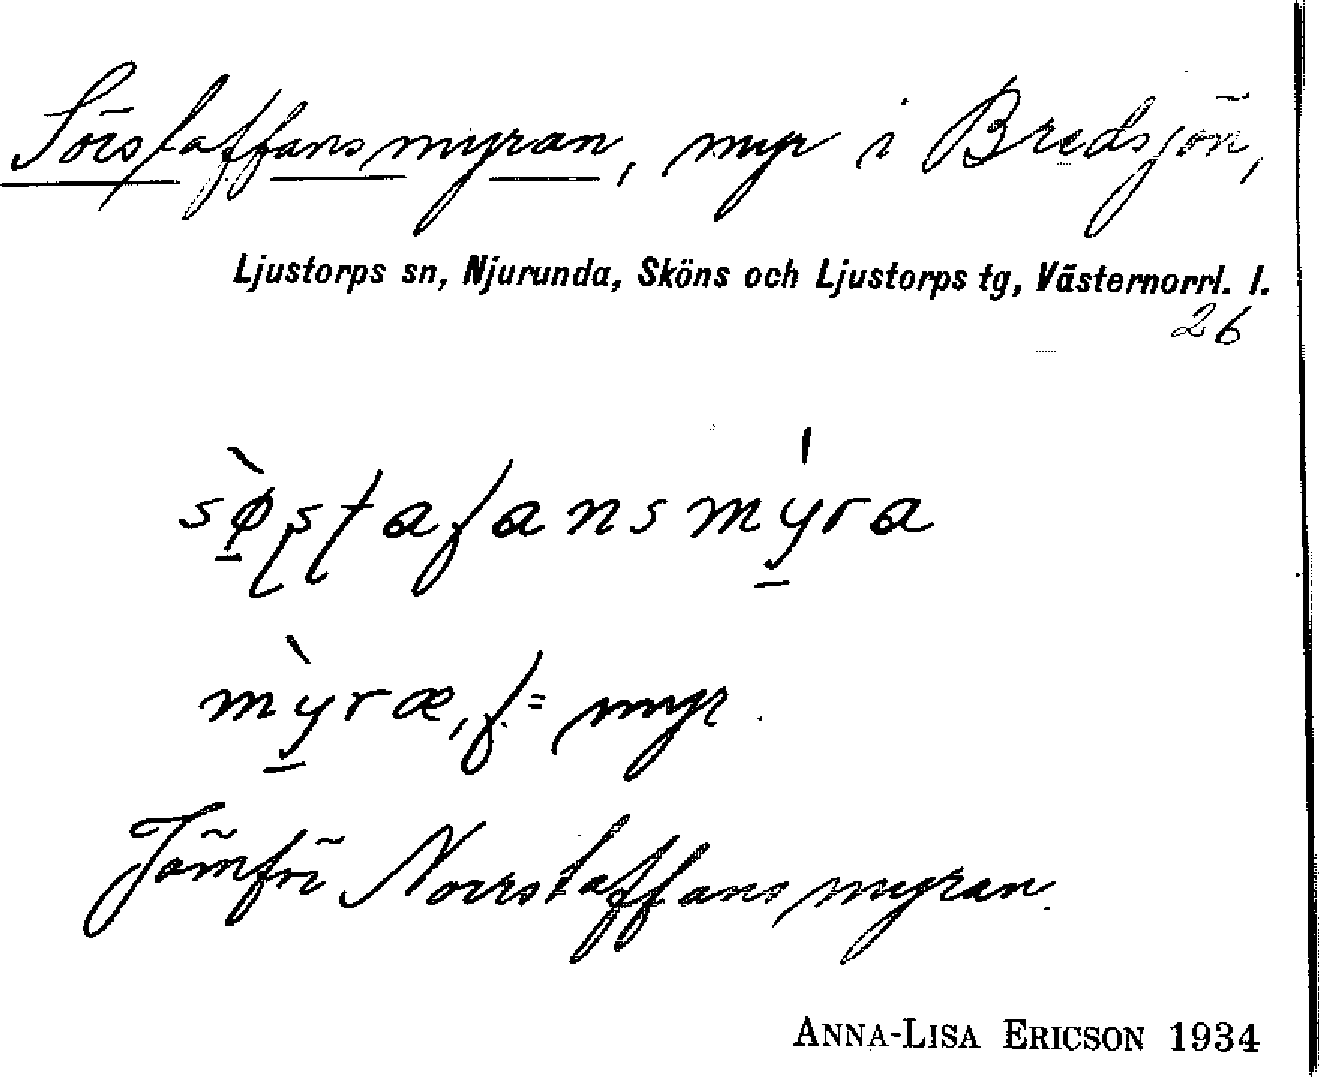 Sörstaffansmyran, myr i Bredsjön,
Ljustorps sn, Njurunda, Sköns och Ljustorps tg, Västernorrl. l.
26
sø̀ṣṭafansmýra
mỳræ, f. = myr.
Jömför Norrstaffansmyran.
ANNA-LISA ERICSON 1934